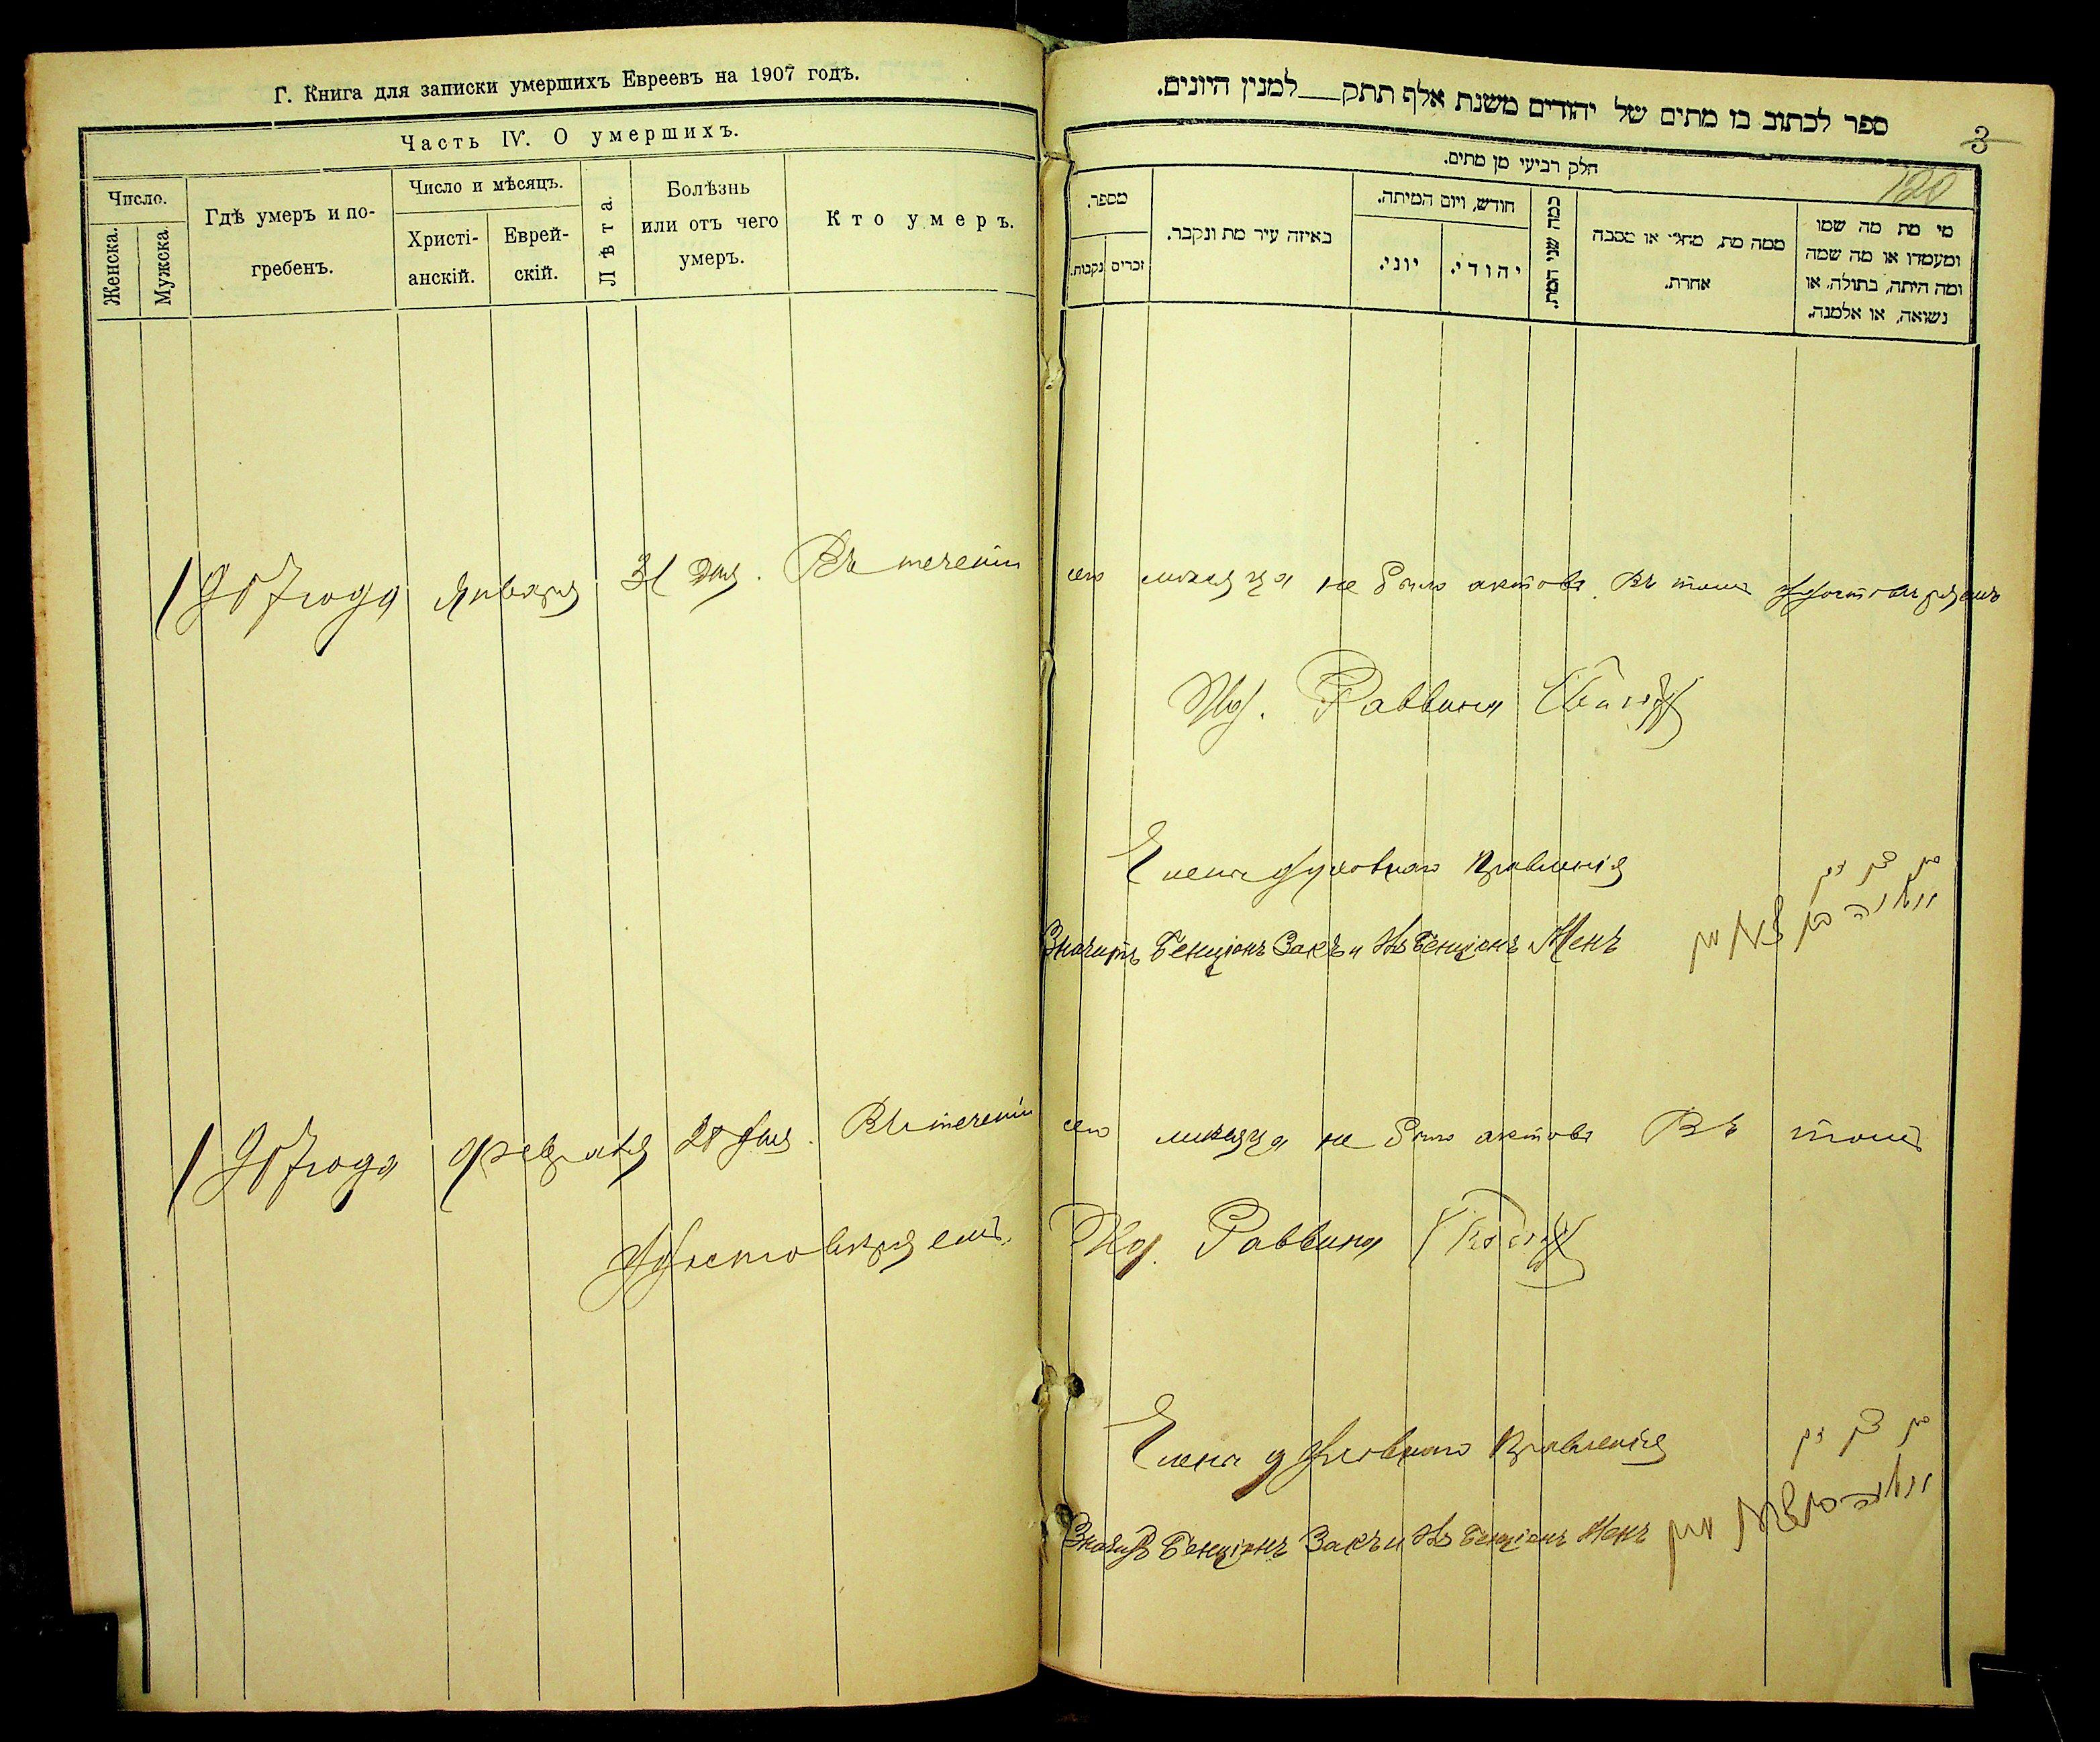 Г. Книга для записки умершихъ Евреевъ на 1907 годъ.
Часть IV. О умершихъ.
Число.
Женска.
Мужска.
Гдѣ умеръ и по-
гребенъ.
Число и мѣсяцъ.
Христі-
анскій.
Еврей-
скій.
Лѣта.
Болѣзнь
или отъ чего
умеръ.
Кто умеръ.
1907 года Января 31 дня. Въ теченіи
1907 года Февраля 28 дня. Въ теченіи
удостовѣряемъ.
ספר לכתוב בו מתים של יהודים משנת אלף תתק למנין היונים.
3
120
חלק רביעי מן מתים.
מספר.
נקבות.
זכרים
באיזה עיר מת ונקבר.
חודש, ויום המיתה.
יוני.
יהודי.
כמה שני המת.
ממה מת, מחלי או מסבה
אחרת.
מי מת מה שמו
ומעמדו או מה שמה
ומה היתה, בתולה, או
נשואה, או אלמנה.
сего мѣсяца не было актовъ. Въ томъ удостовѣряемъ
Раввина
Члены духовнаго Правленія
Значитъ Бенціонъ Закъ и Бенціонъ Менъ
сего мѣсяца не было актовъ Въ томъ
Раввина
Члены духовнаго Правленія
Значитъ Бенціонъ Закъ и Бенціонъ Менъ